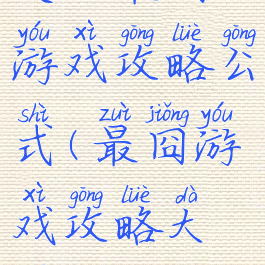 yóu xì gōng lüè gōng
游戏攻略公
shì zuì jiǒng yóu
式(最囧游
xì gōng lüè dà
戏攻略大